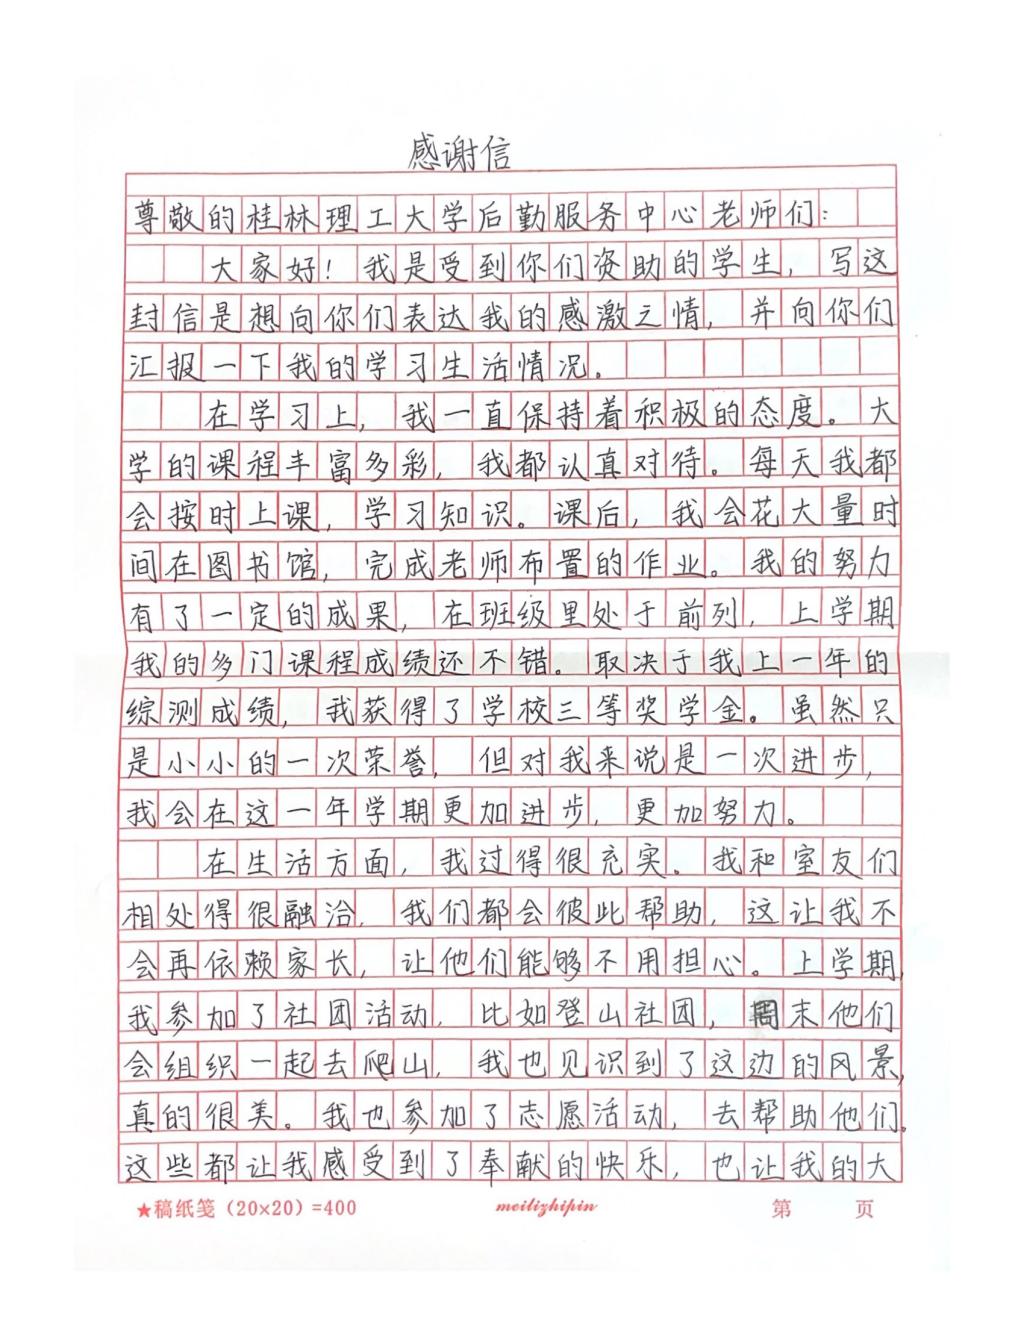 感谢信
尊敬的桂林理工大学后勤服务中心老师们：
大家好！我是受到你们资助的学生，写这
封信是想向你们表达我的感激之情，并向你们
汇报一下我的学习生活情况。
在学习上，我一直保持着积极的态度。大
学的课程丰富多彩，我都认真对待。每天我都
会按时上课，学习知识。课后，我会花大量时
间在图书馆，完成老师布置的作业。我的努力
有了一定的成果，在班级里处于前列，上学期
我的多门课程成绩还不错。取决于我上一年的
综测成绩，我获得了学校三等奖学金。虽然只
是小小的一次荣誉，但对我来说是一次进步，
我会在这一年学期更加进步，更加努力。
在生活方面，我过得很充实。我和室友们
相处得很融洽，我们都会彼此帮助，这让我不
会再依赖家长，让他们能够不用担心。上学期，
我参加了社团活动，比如登山社团，周末他们
会组织一起去爬山，我也见识到了这边的风景，
真的很美。我也参加了志愿活动，去帮助他们。
这些都让我感受到了奉献的快乐，也让我的大
★稿纸笺（20×20）=400 meilizhipin 第 页